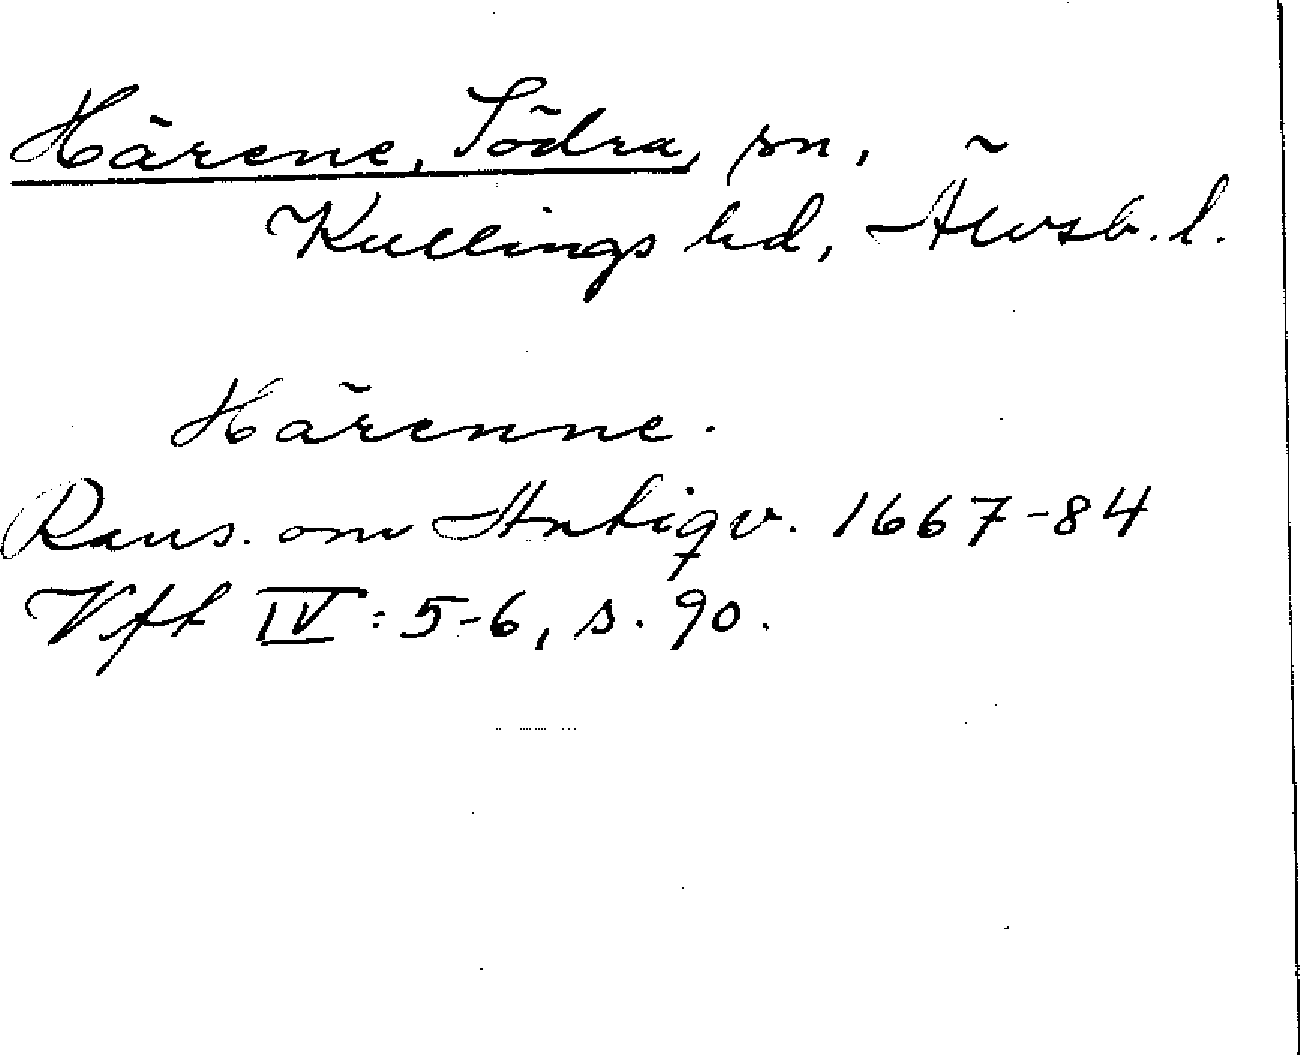 Härene, Södra, sn,
Kullings hd, Älvsb. l.
Härenne.
Rans. om Antiqv. 1667-84
Vft IV: 5-6, s. 90.